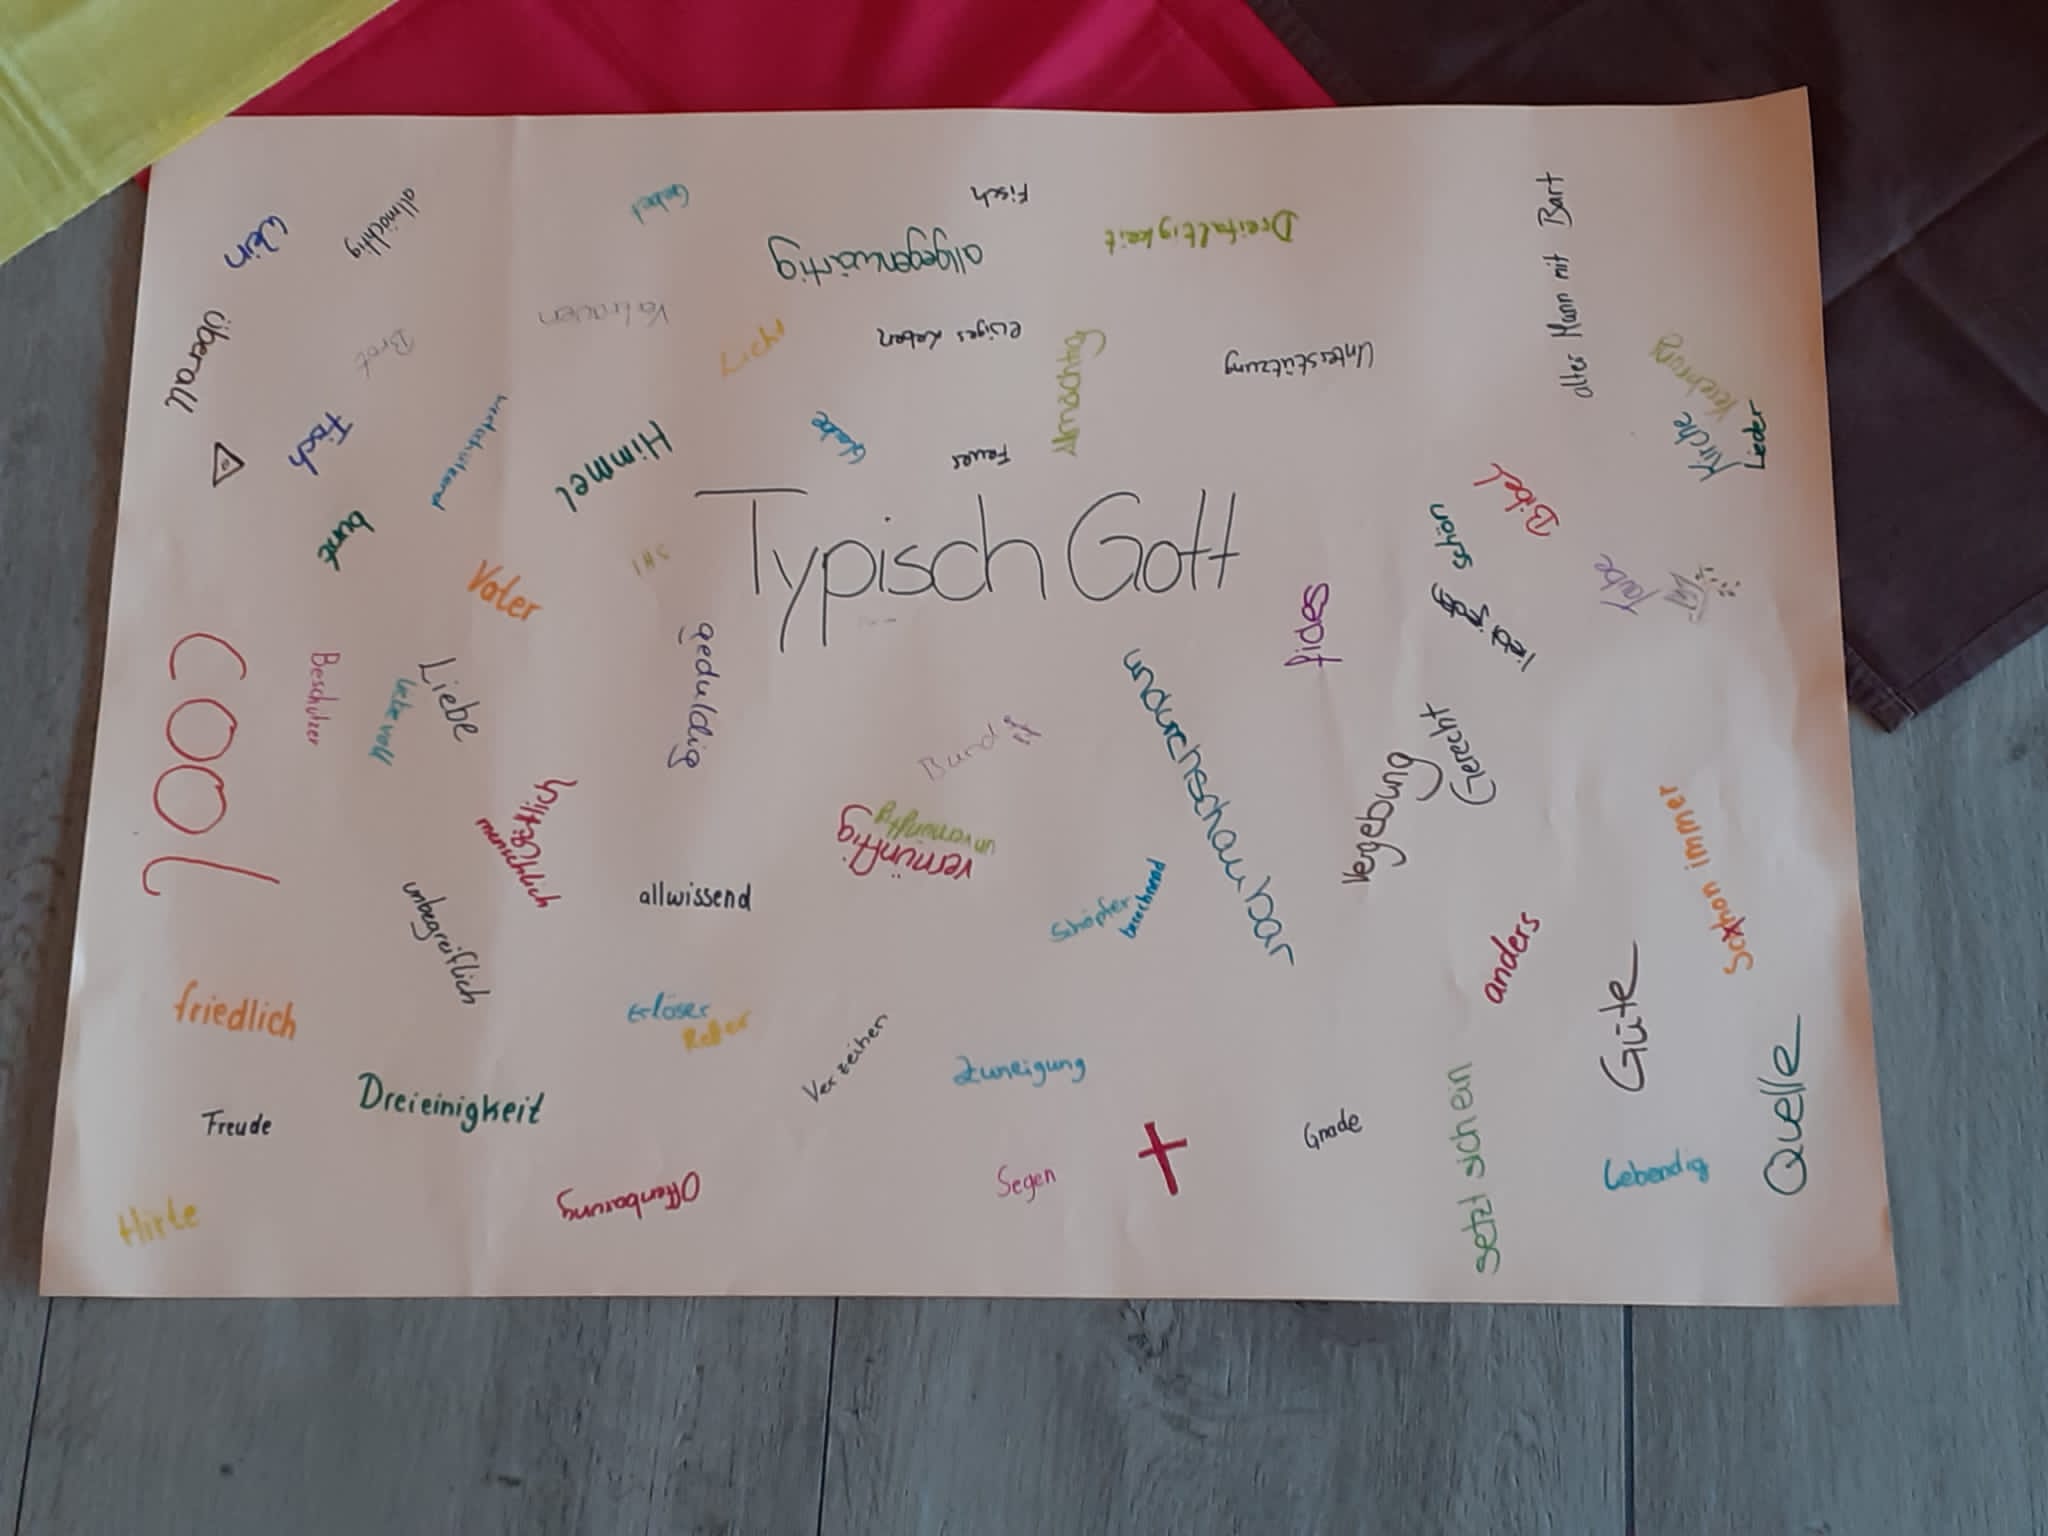 Gebet
Fisch
allmächtig
Wein
allgegenwärtig
Dreifaltigkeit
alter Mann mit Bart
Vertrauen
überall
Brot
Licht
ewiges Leben
Hoffnung
Unterstützung
Fisch
Himmel
Glaube
Feuer
Kirche
Lieder
Bibel
bunt
Typisch Gott
schön
Vater
Taube
fides
Beschützer
Liebe
liebevoll
geduldig
undurchschaubar
Bund
Gerecht
Vergebung
cool
menschlich
unvernünftig
vernünftig
schon immer
allwissend
Schöpfer
berechnend
unbegreiflich
anders
friedlich
Erlöser
Retter
Verzeihen
Zuneigung
Güte
Quelle
Dreieinigkeit
Freude
Gnade
setzt sich ein
Lebendig
Hirte
Offenbarung
Segen